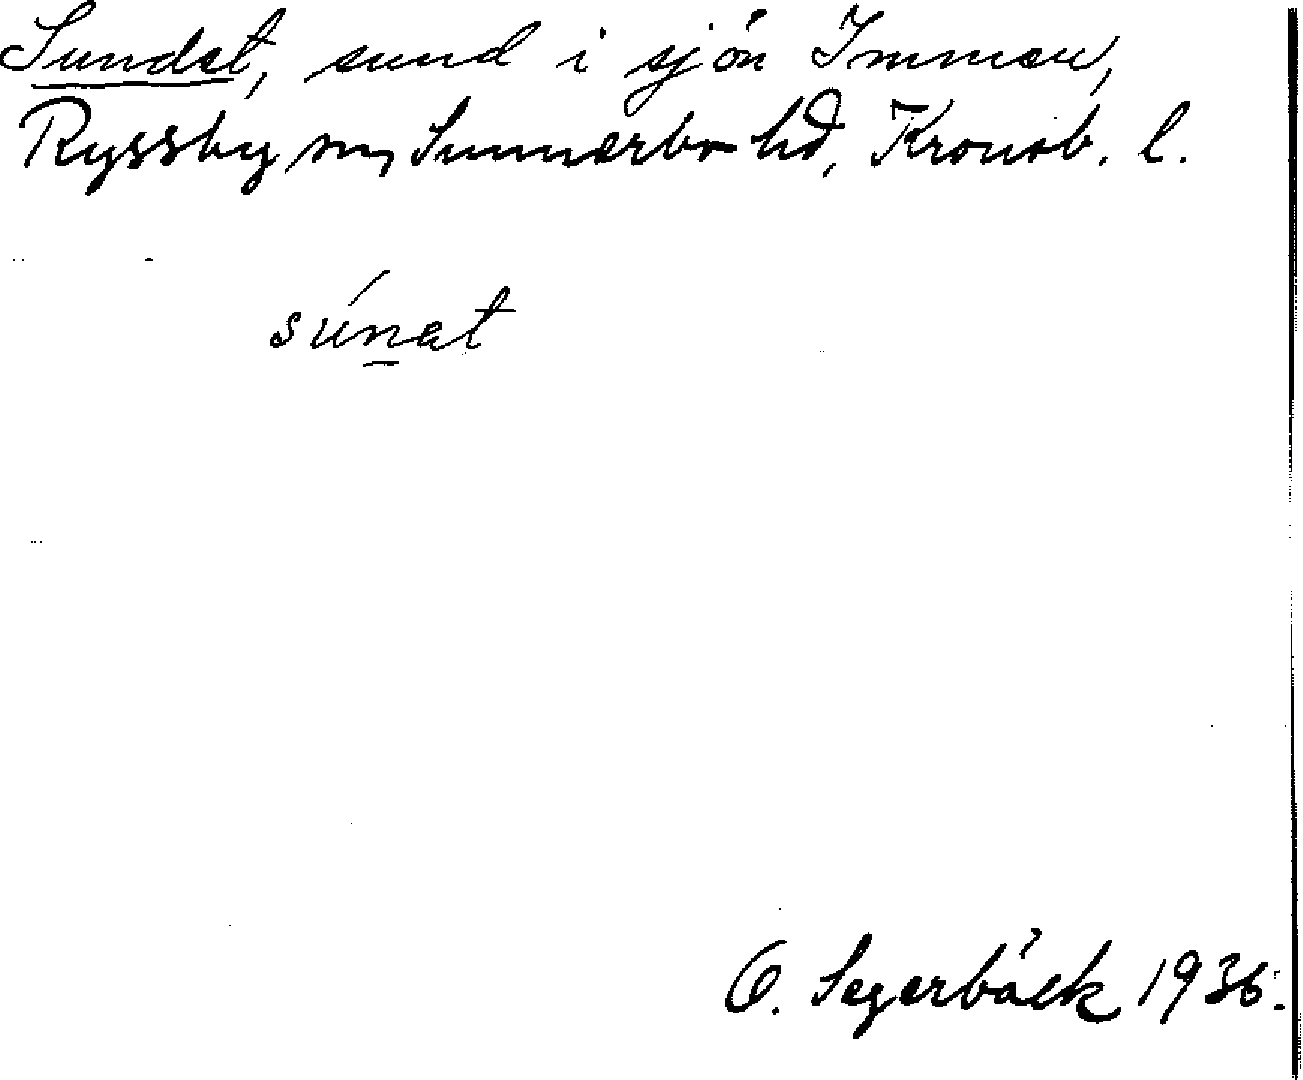 Sundet, sund i sjön Immen,
Ryssby sn, Sunnerbo hd, Kronob. l.
súnet
O. Segerbäck 1936.